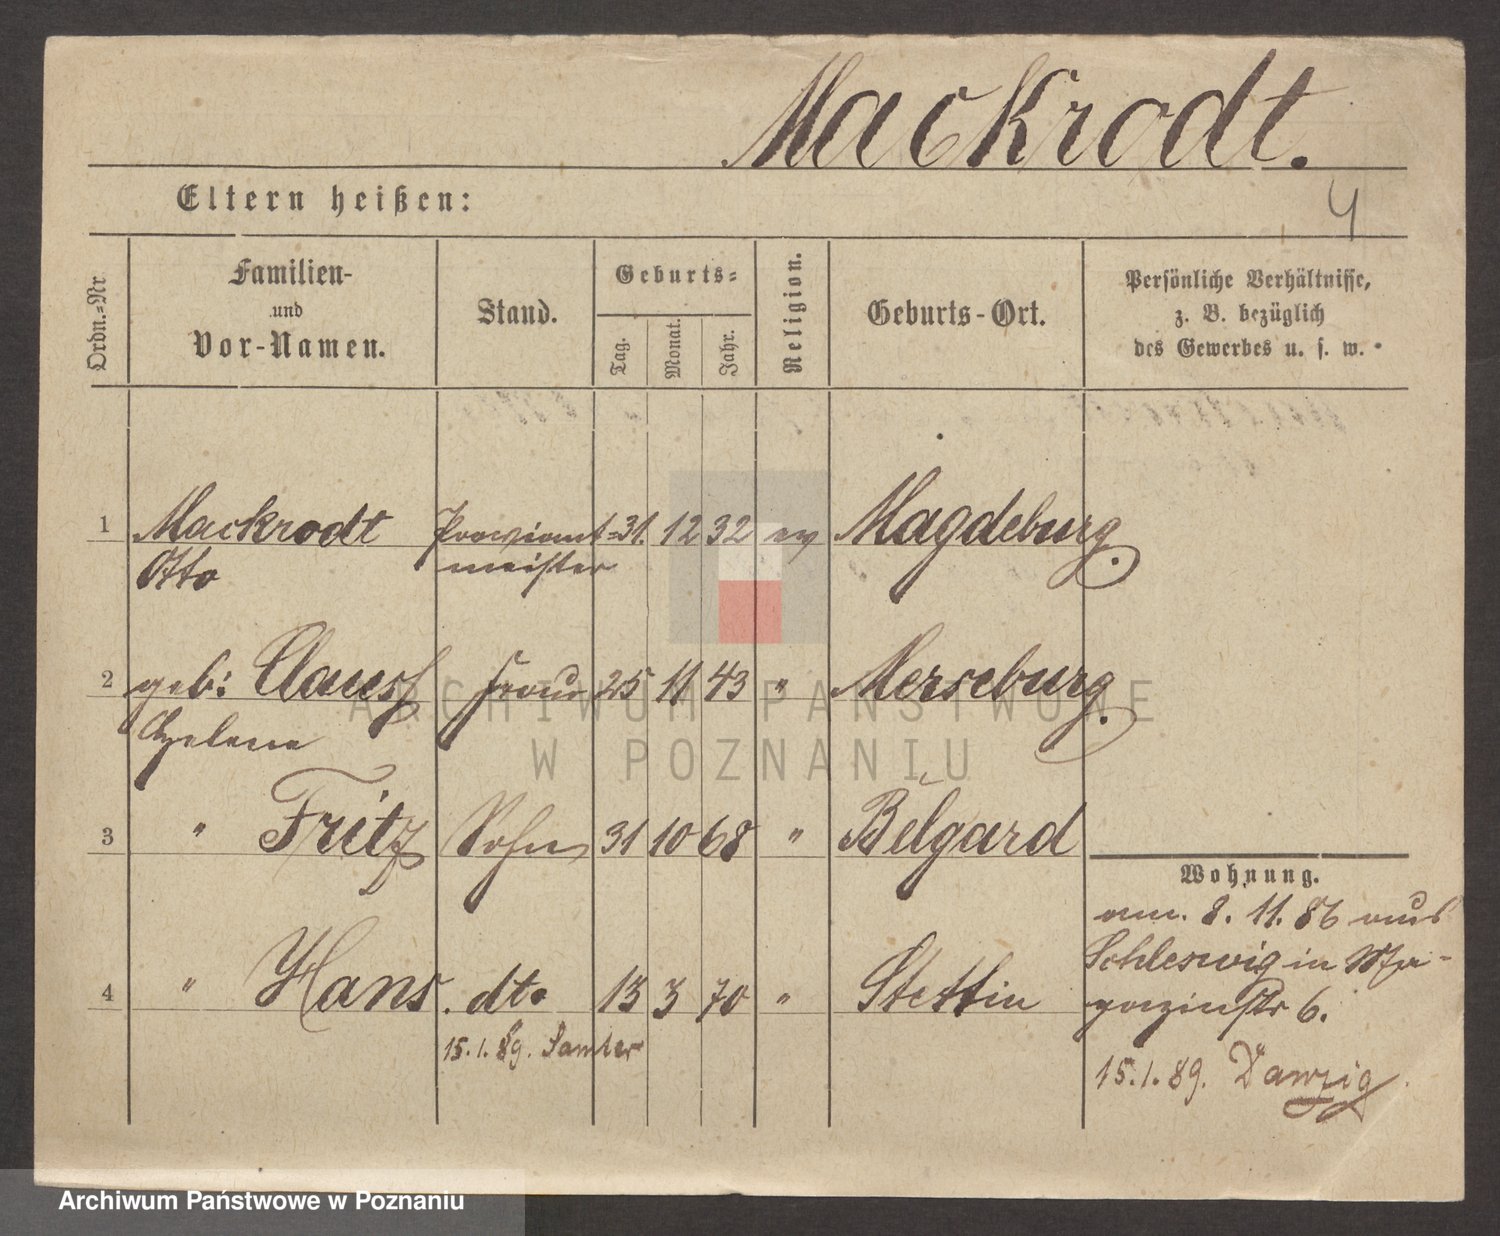 Mackrodt.
Eltern heißen:
4
Ordn.-Nr
Familien-
und
Vor-Namen.
Stand.
Geburts-
Tag.
Monat.
Jahr.
Religion.
Geburts-Ort.
Persönliche Verhältnisse,
z. B. bezüglich
des Gewerbes u. s. w.
1 Mackrodt Proviant- 31. 12 32 ev Magdeburg.
Otto meister
2 geb: Clauss Frau 25 11 43 " Merseburg.
Helene
3 " Fritz Sohn 31 10 68 " Belgard
Wohnung.
am. 8. 11. 86 aus
Schleswig in Ma-
gazinstr 6.
4 " Hans. dto 13 3 70 " Stettin
15.1.89. Samter
15.1.89. Danzig
ARCHIWUM PAŃSTWOWE
W POZNANIU
Archiwum Państwowe w Poznaniu